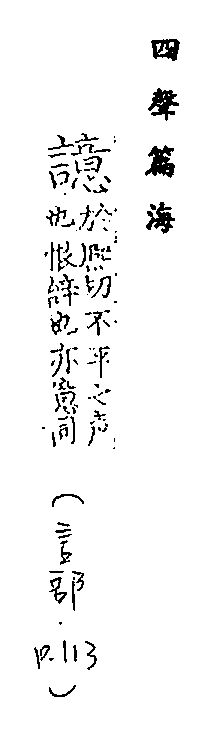 四聲篇海
譩
於熙切不平之声
也恨辤也亦噫同
(言部.
p.113)